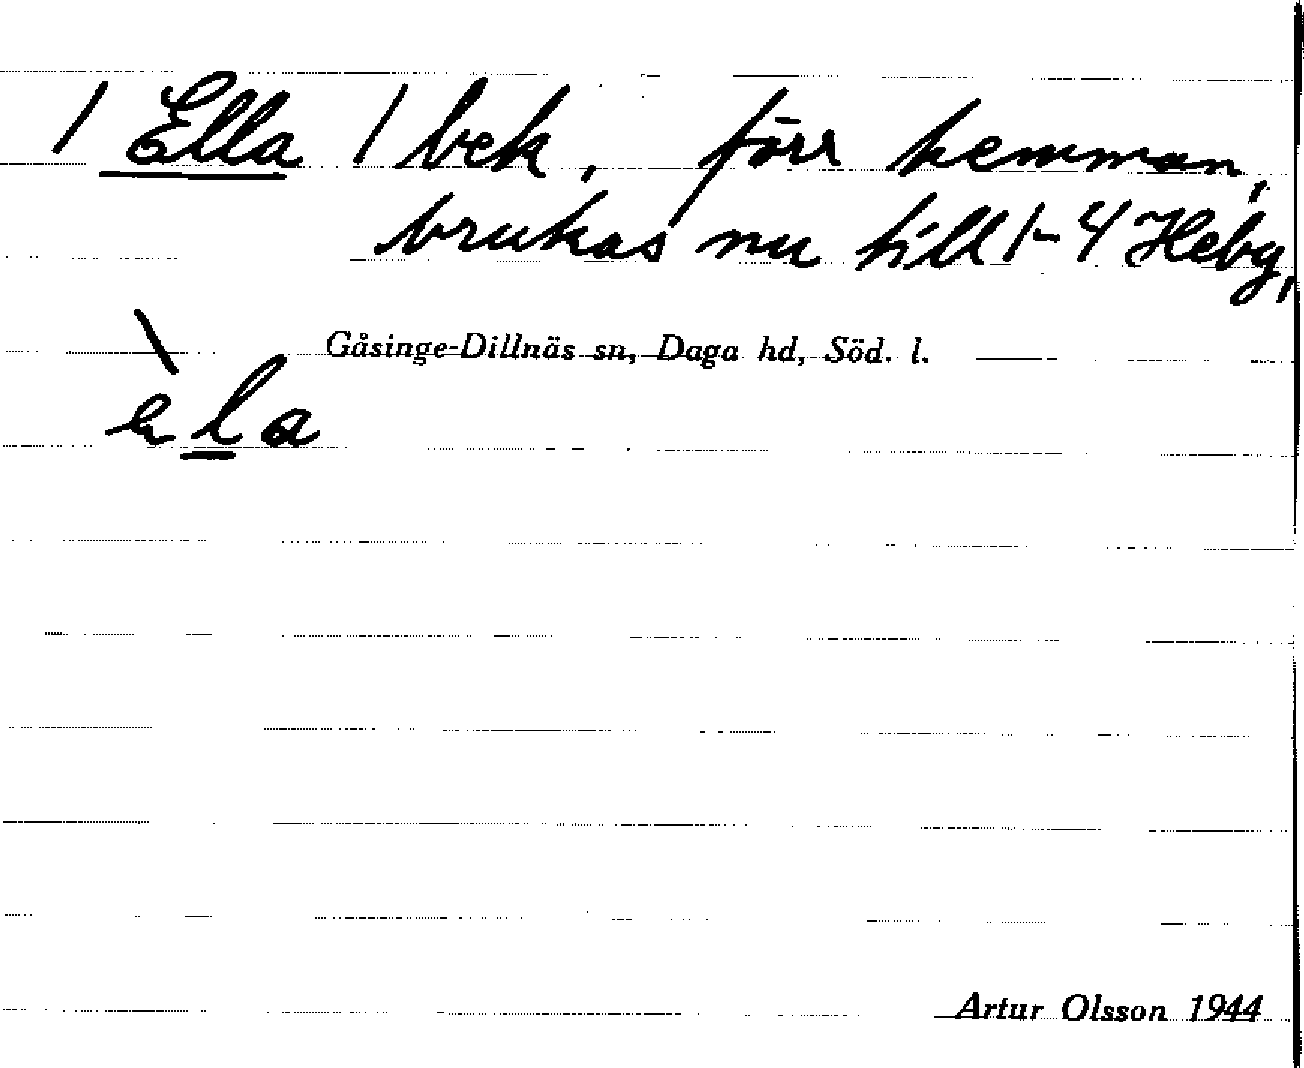 / Ella / bek, förr hemman,
brukas nu till 1-4 Heby,
Gåsinge-Dillnäs sn, Daga hd, Söd. l.
èla
Artur Olsson 1944